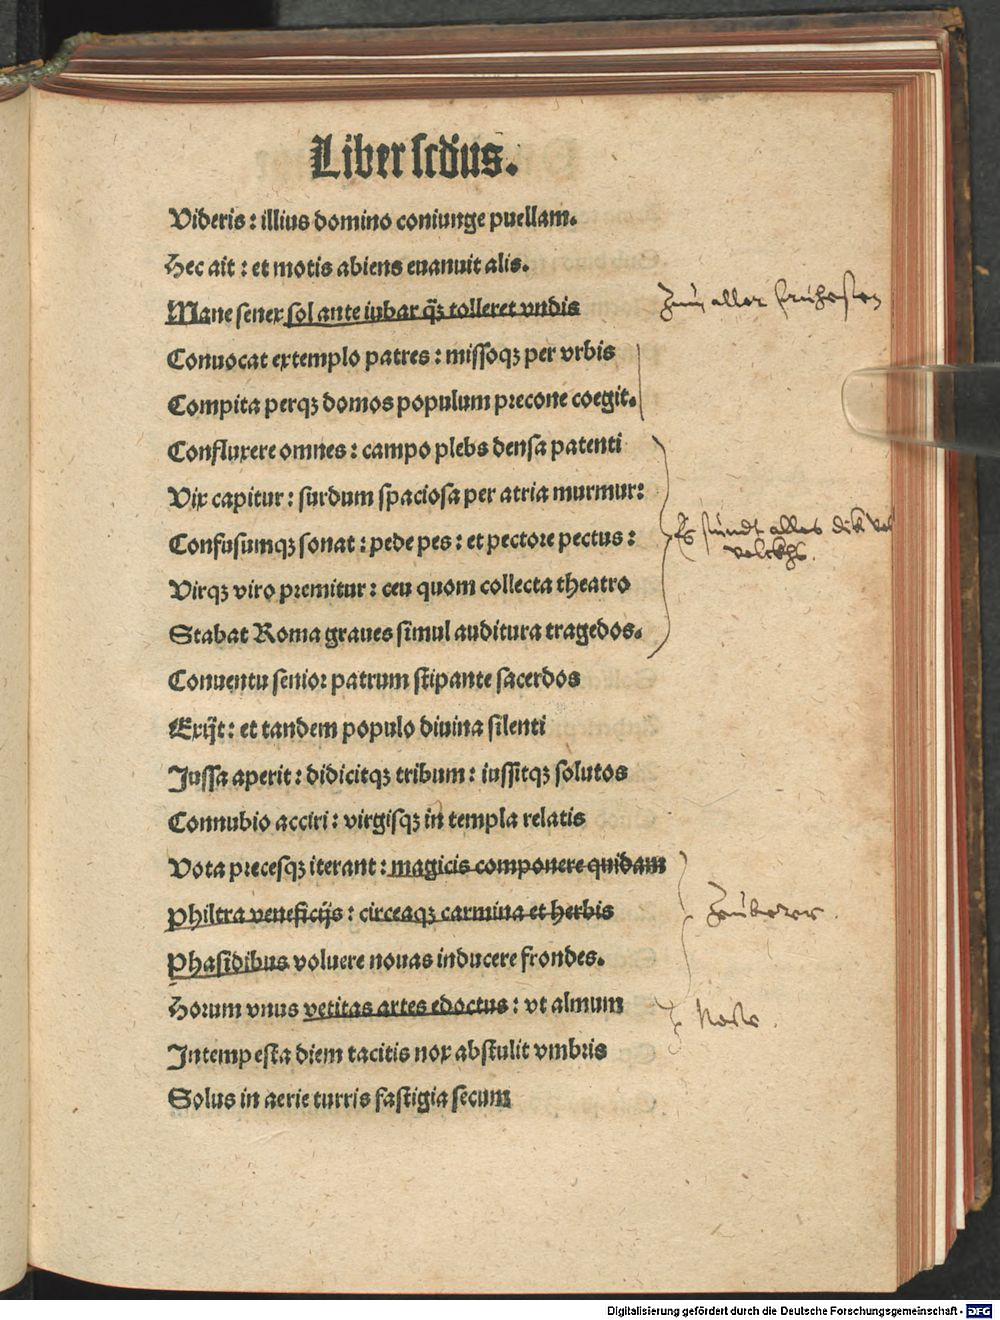 Liber scďus.
Videris: illius domino coniunge puellam.
Hec ait: et motis abiens euanuit alis.
Mane senex sol ante iubar q̃ȝ tolleret vndis
Zum aller fruhesten
Conuocat extemplo patres: missoqȝ per vrbis
Compita perqȝ domos populum precone coegit.
Confluxere omnes: campo plebs densa patenti
Vix capitur: surdum spaciosa per atria murmur:
Confusumqȝ sonat: pede pes: et pectore pectus:
Es stundt alles dik
volckhs.
Virqȝ viro premitur: ceu quom collecta theatro
Stabat Roma graues simul auditura tragedos.
Conuentu senior patrum stipante sacerdos
Exijt: et tandem populo diuina silenti
Jussa aperit: didicitqȝ tribum: iussitqȝ solutos
Connubio acciri: virgisqȝ in templa relatis
Vota precesqȝ iterant: magicis componere quidam
Philtra veneficijs: circeaqȝ carmina et herbis
Zauberer.
Phasidibus voluere nouas inducere frondes.
Horum vnus vetitas artes edoctus: vt almum
Intempesta diem tacitis nox abstulit vmbris
Solus in aerie turris fastigia secum
Digitalisierung gefördert durch die Deutsche Forschungsgemeinschaft - DFG